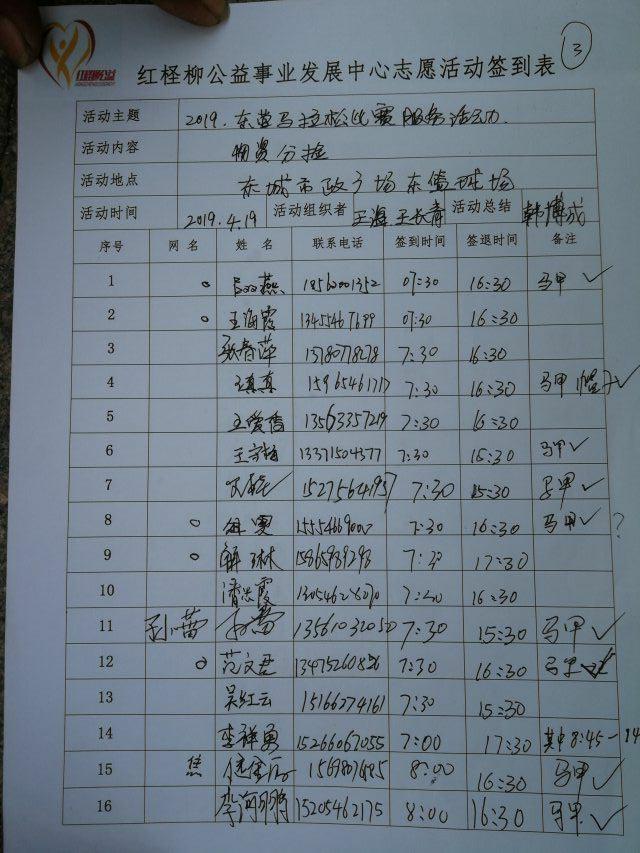 红柽柳公益
红柽柳公益事业发展中心志愿活动签到表 ③
活动主题 2019.东营马拉松比赛服务活动.
活动内容 物资分捡
活动地点 东城市政广场东篮球场
活动时间 2019.4.19 活动组织者 王海 王长青 活动总结 韩博成
序号 网名 姓名 联系电话 签到时间 签退时间 备注
1 燕 18560001352 07:30 16:30 马甲 ✓
2 王海霞 13455467699 07:30 16:30
3 张春萍 13780778278 7:30 16:30
4 王真真 15965461717 7:30 16:30 马甲 帽子 ✓
5 王爱香 13563357219 7:30 16:30
6 王 13371504377 7:30 15:30 马甲 ✓
7 15275644957 7:30 15:30 马甲 ✓
8 7:30 16:30 马甲 ✓ ?
9 解琳 15865989298 7:30 17:30
10 潘忠霞 7:20 16:30
11 孙蕾 孙蕾 13561032050 7:30 15:30 马甲 ✓
12 范文君 13475260826 7:30 16:30 马甲
13 吴红云 15166274161 7:30 15:30
14 李祥勇 15266067055 7:00 17:30 其中8:45-14
15 8:00 16:30 马甲 ✓
16 李河鹏 15205462175 8:00 16:30 马甲 ✓